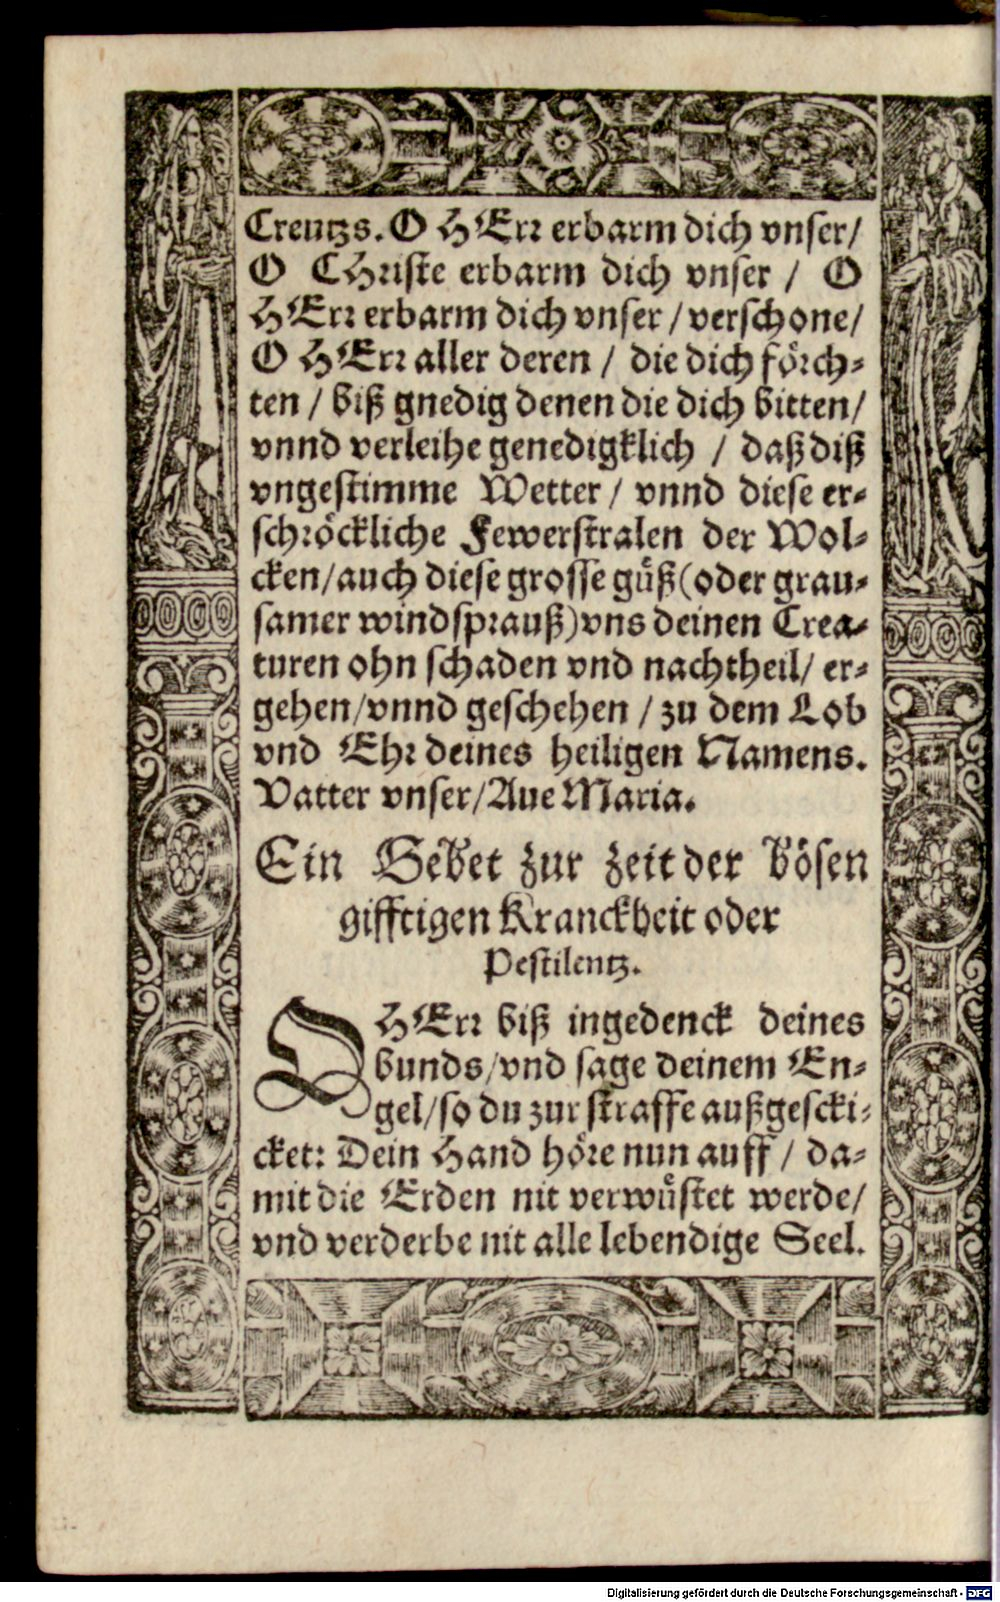 Creutzs. O HErr erbarm dich vnser/
O CHriste erbarm dich vnser / O
HErr erbarm dich vnser / verschone/
O HErr aller deren / die dich förch-
ten / biß gnedig denen die dich bitten/
vnnd verleihe genedigklich / daß diß
vngestimme Wetter / vnnd diese er-
schröckliche Fewerstralen der Wol-
cken/auch diese grosse güß (oder grau-
samer windsprauß) vns deinen Crea-
turen ohn schaden vnd nachtheil/ er-
gehen/vnnd geschehen / zu dem Lob
vnd Ehr deines heiligen Namens.
Vatter vnser/Aue Maria.
Ein Gebet zur zeit der bösen
gifftigen Kranckheit oder
Pestilentz.
O HErr biß ingedenck deines
bunds/vnd sage deinem En-
gel/so du zur straffe außgescki-
cket: Dein Hand höre nun auff / da-
mit die Erden nit verwüstet werde/
vnd verderbe nit alle lebendige Seel.
Digitalisierung gefördert durch die Deutsche Forschungsgemeinschaft - DFG